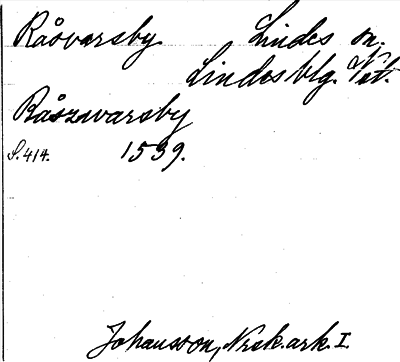 Råsvarsby Lindes sn.
Lindesblg. Vet.
Råszwarsby
S. 414. 1539.
Johansson, Nrsk. ark. I